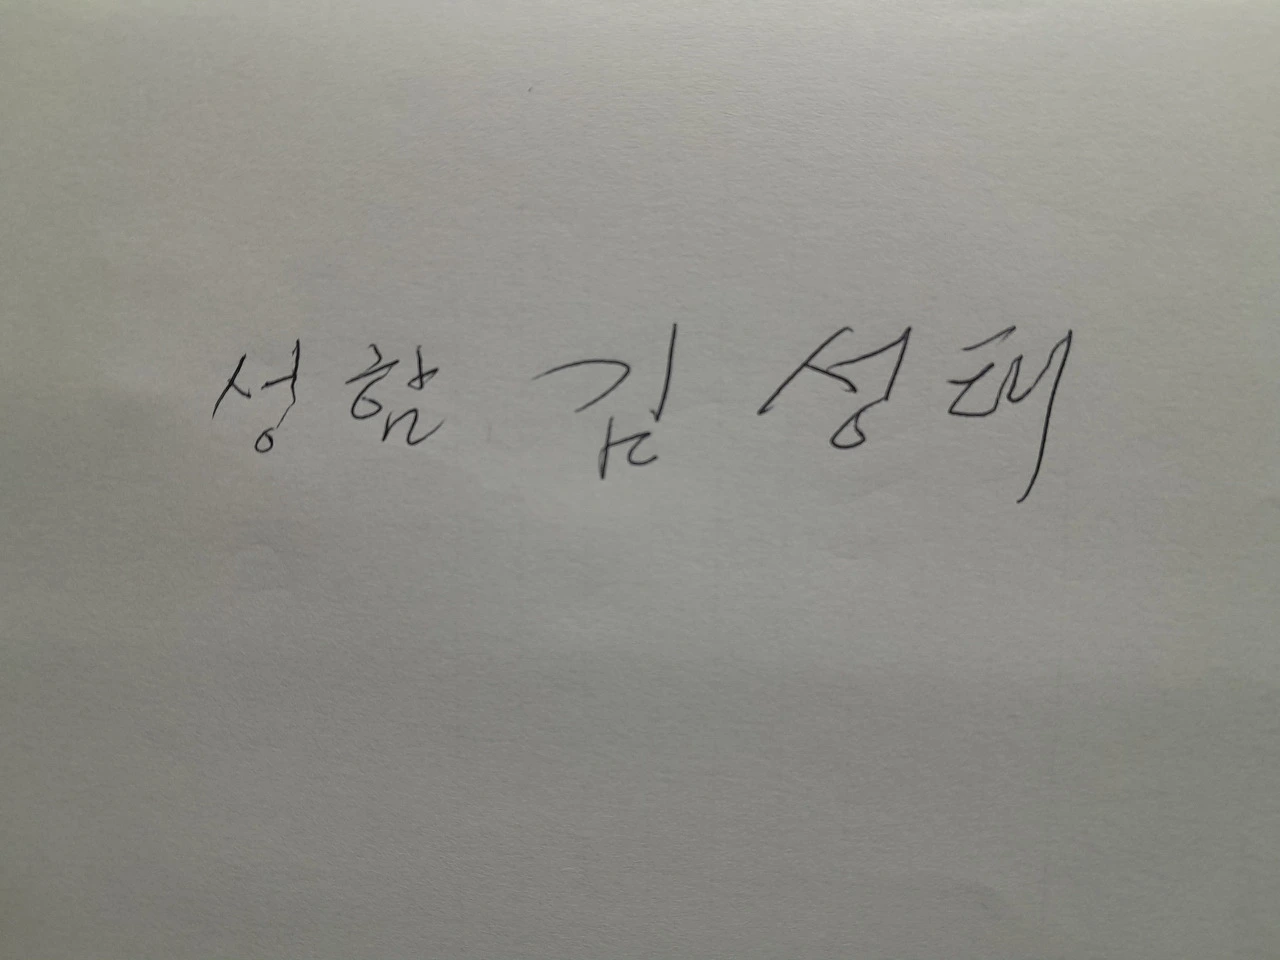 성함 김성태